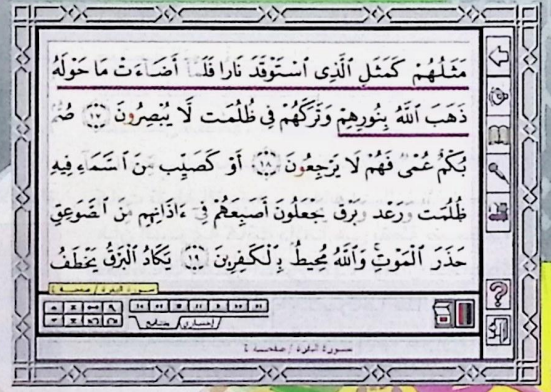 مَثَلُهُمْ كَمَثَلِ الَّذِى اسْتَوْقَدَ نَارًا فَلَمَّا أَضَاءَتْ مَا حَوْلَهُ
ذَهَبَ اللَّهُ بِنُورِهِمْ وَتَرَكَهُمْ فِى ظُلُمَتٍ لَّا يُبْصِرُونَ ١٧ صُمٌّ
بُكْمٌ عُمْىٌ فَهُمْ لَا يَرْجِعُونَ ١٨ أَوْ كَصَيِّبٍ مِّنَ السَّمَاءِ فِيهِ
ظُلُمَتٌ وَرَعْدٌ وَبَرْقٌ يَجْعَلُونَ أَصَبِعَهُمْ فِى ءَاذَانِهِم مِّنَ الصَّوَعِقِ
حَذَرَ الْمَوْتِ وَاللَّهُ مُحِيطٌ بِالْكَفِرِينَ ١٩ يَكَادُ الْبَرْقُ يَخْطَفُ
سورة البقرة / صفحة ٤
سورة البقرة / صفحة ٤